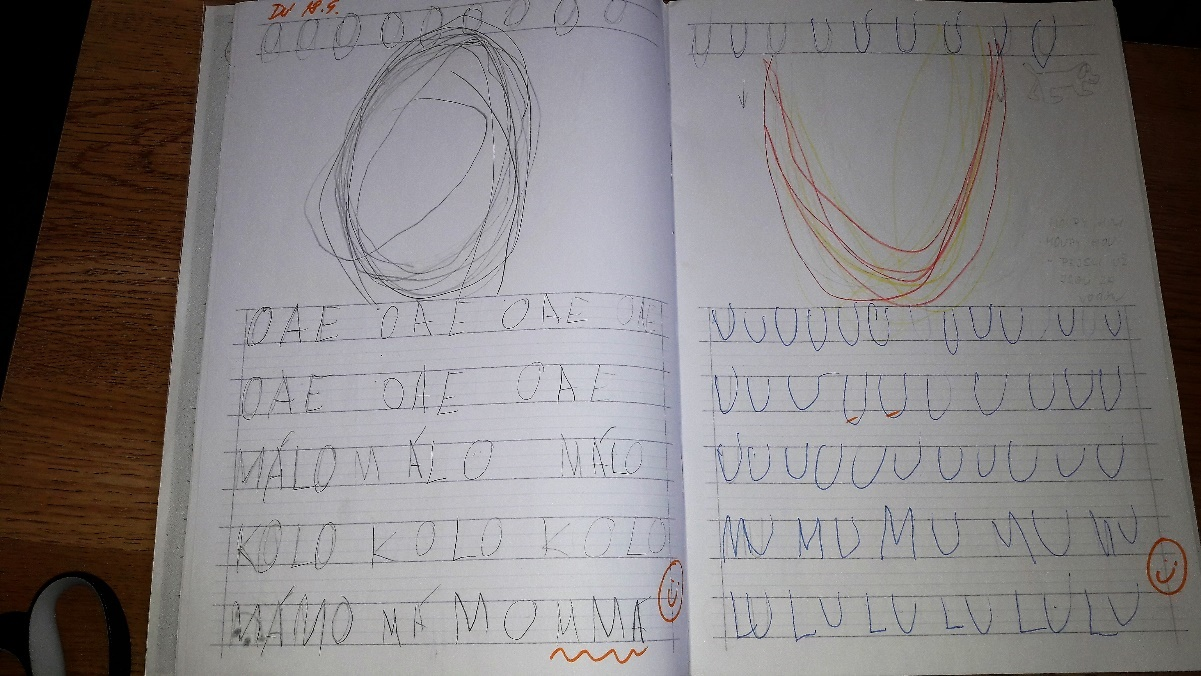 DÚ 18.9.
O O O O O O O O O
OAE OAE OAE OAE
OAE OAE OAE
MÁLO MÁLO MÁLO
KOLO KOLO KOLO
MÁMO MÁ MO M MÁ
U U U U U U U U U
U U U U U U U U U U U
U U U U U U U U U U
U U U U U U U U U U U
MU MU MU MU MU
LU LU LU LU LU LU